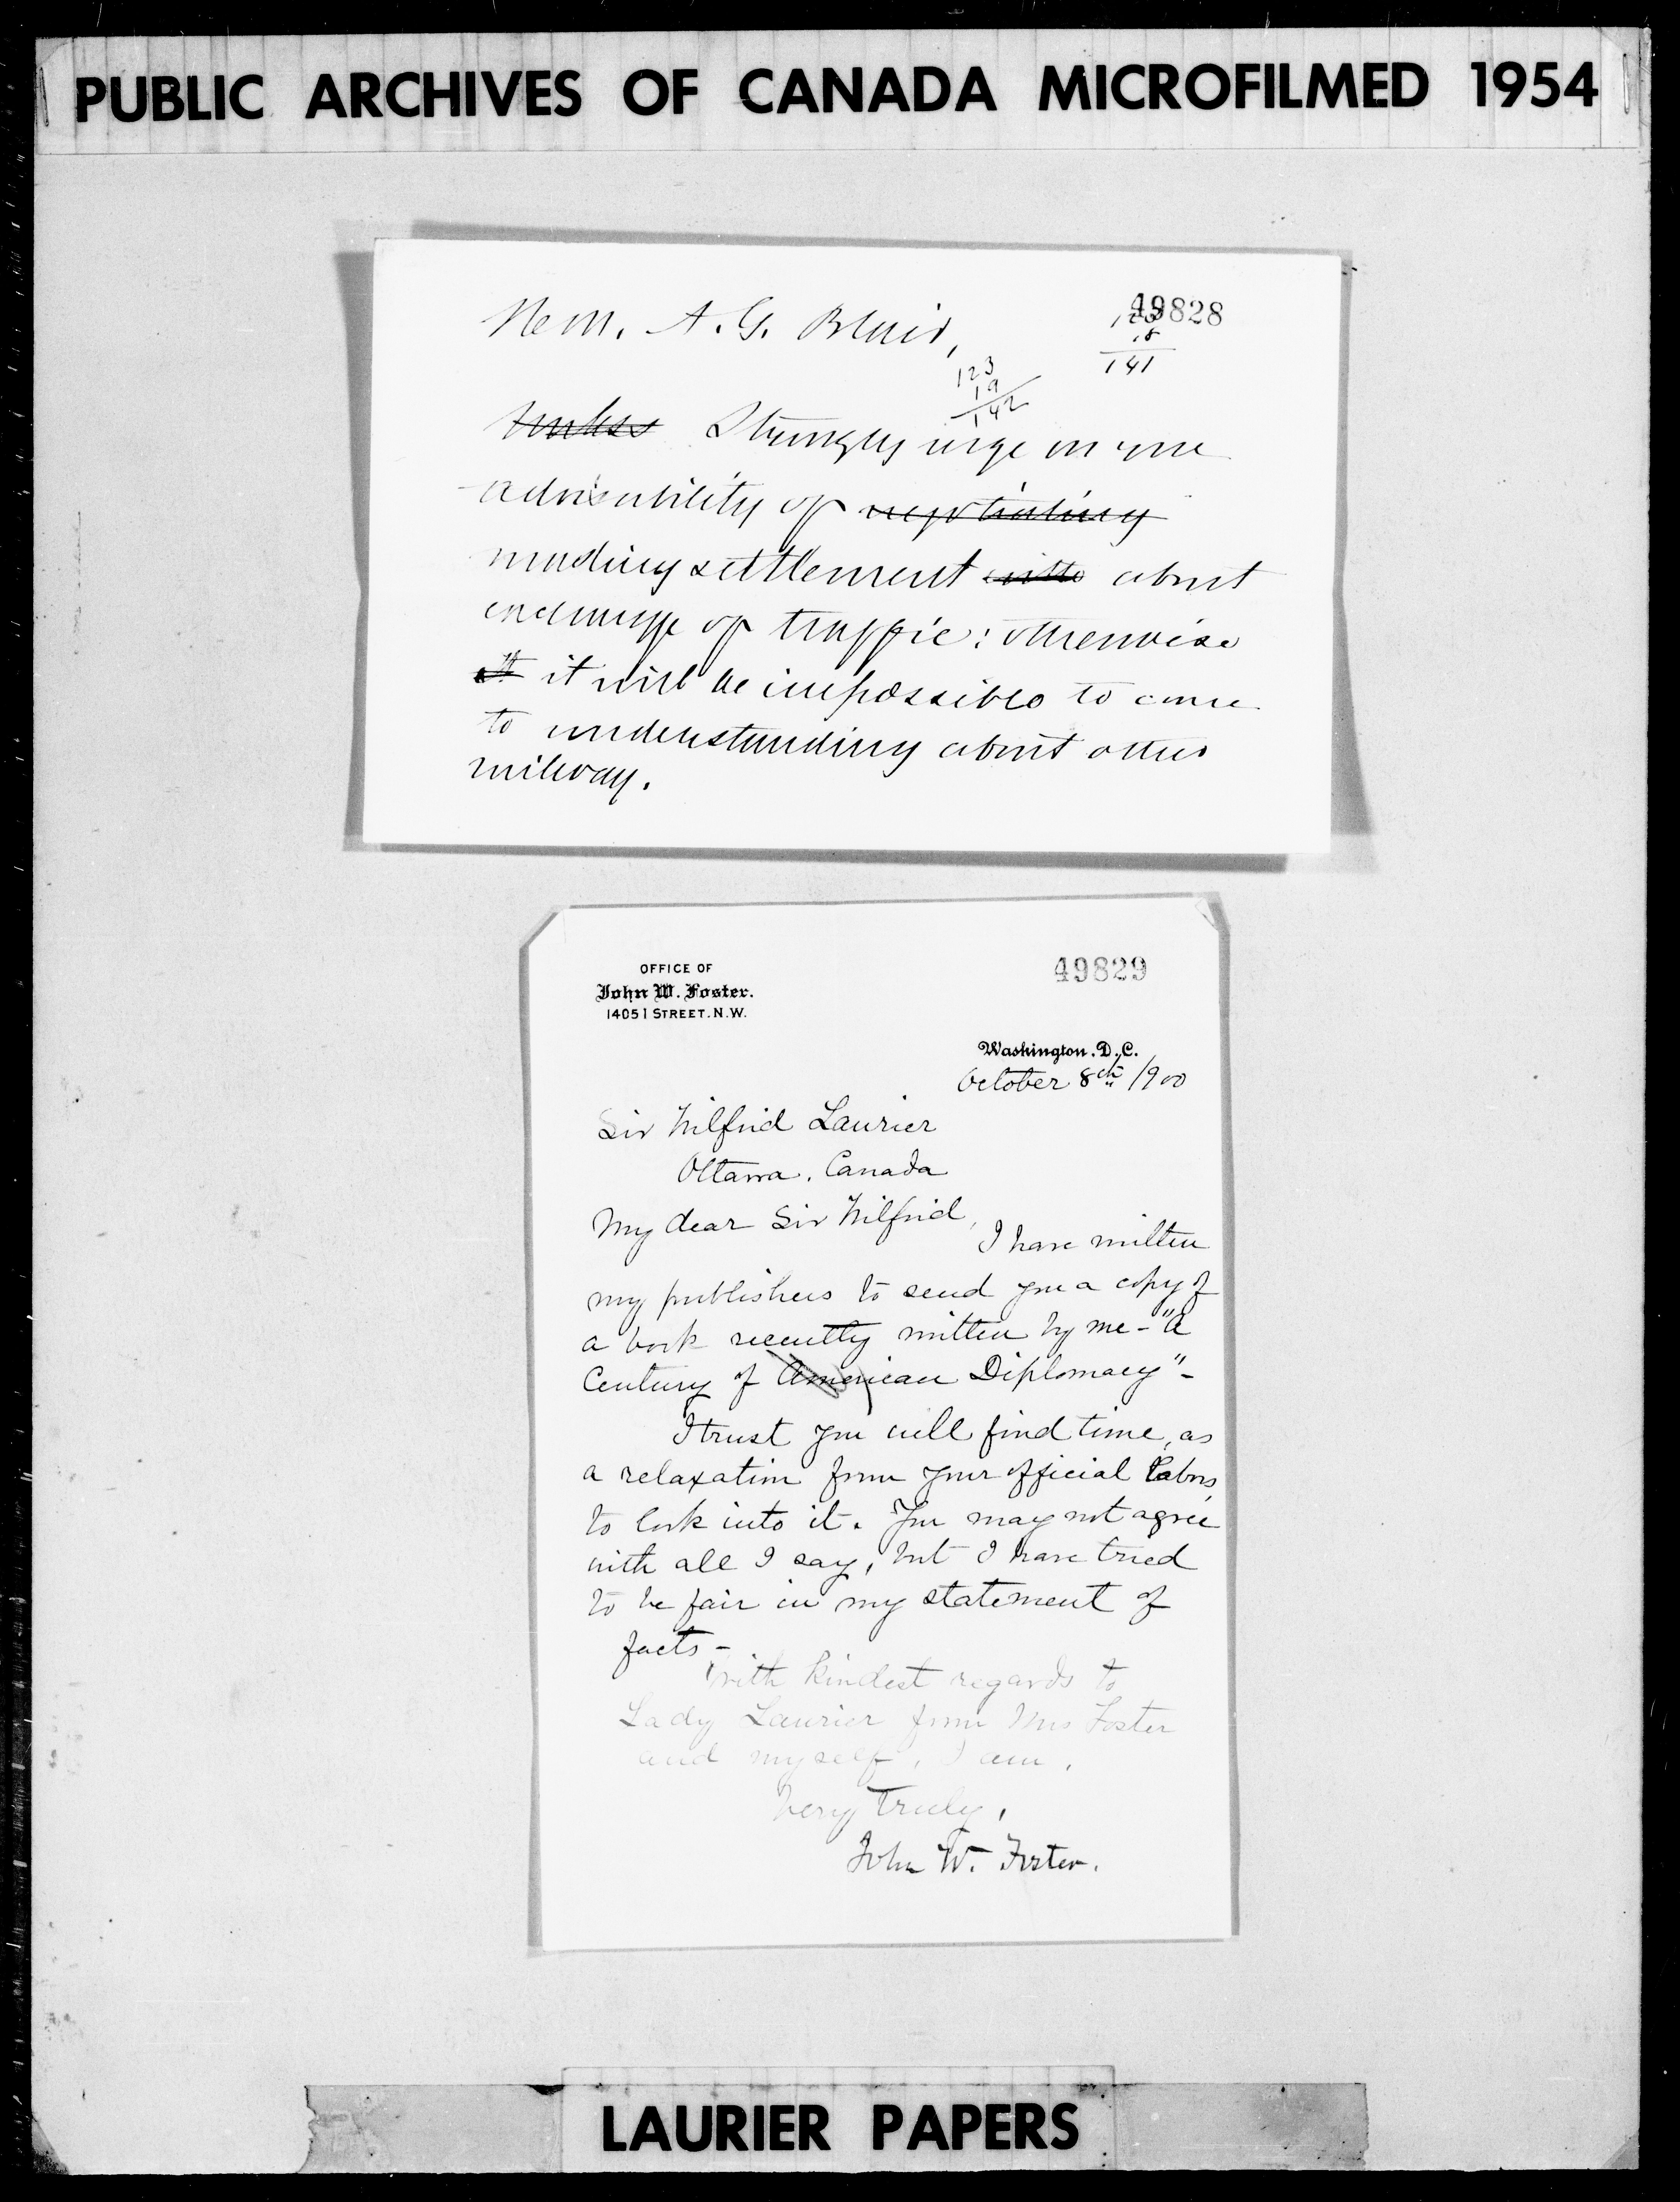 PUBLIC ARCHIVES OF CANADA MICROFILMED 1954
49828
Hon. A. G. Blair,
123
18
141
123
19
142
Unless Strongly urge on you
advisability of negotiating
making settlement into about
exchange of traffic; otherwise
it will be impossible to come
to understanding about other
railway.
OFFICE OF
John W. Foster.
1405 I STREET. N.W.
49829
Washington, D.C.
October 8th 1900
Sir Wilfrid Laurier
Ottawa, Canada
My dear Sir Wilfrid,
I have written
my publishers to send you a copy of
a book recently written by me - "A
Century of American Diplomacy" -
I trust you will find time, as
a relaxation from your official labors,
to look into it. You may not agree
with all I say, but I have tried
to be fair in my statement of
facts -
With kindest regards to
Lady Laurier from Mrs Foster
and myself, I am,
Very truly,
John W. Foster.
LAURIER PAPERS